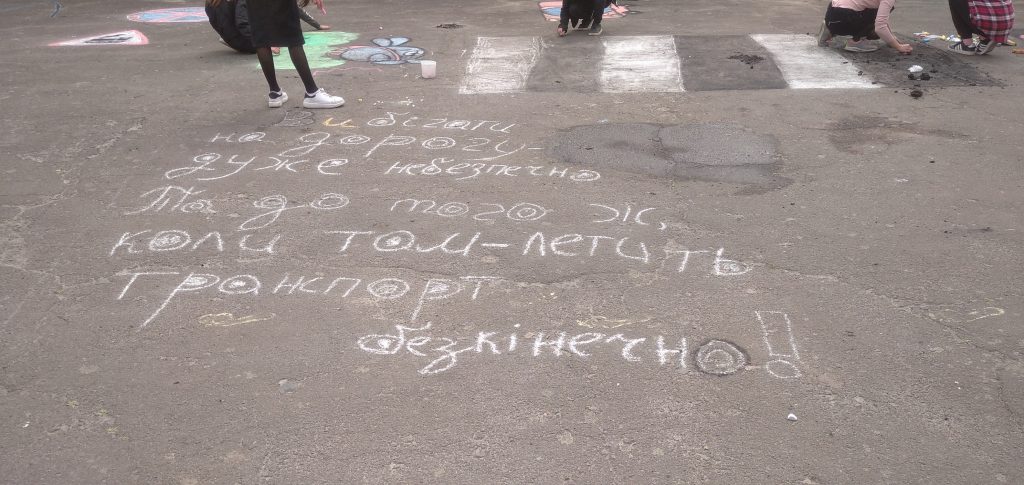 Вибігати
на дорогу-
дуже небезпечно
Та до того ж,
коли том-летить
транспорт
безкінечно!